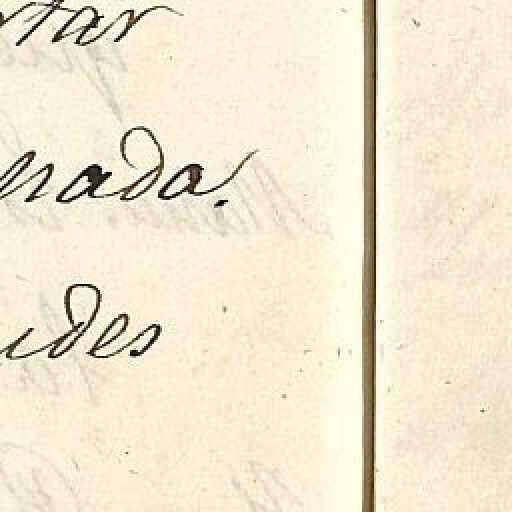 rtar
nada.
udes